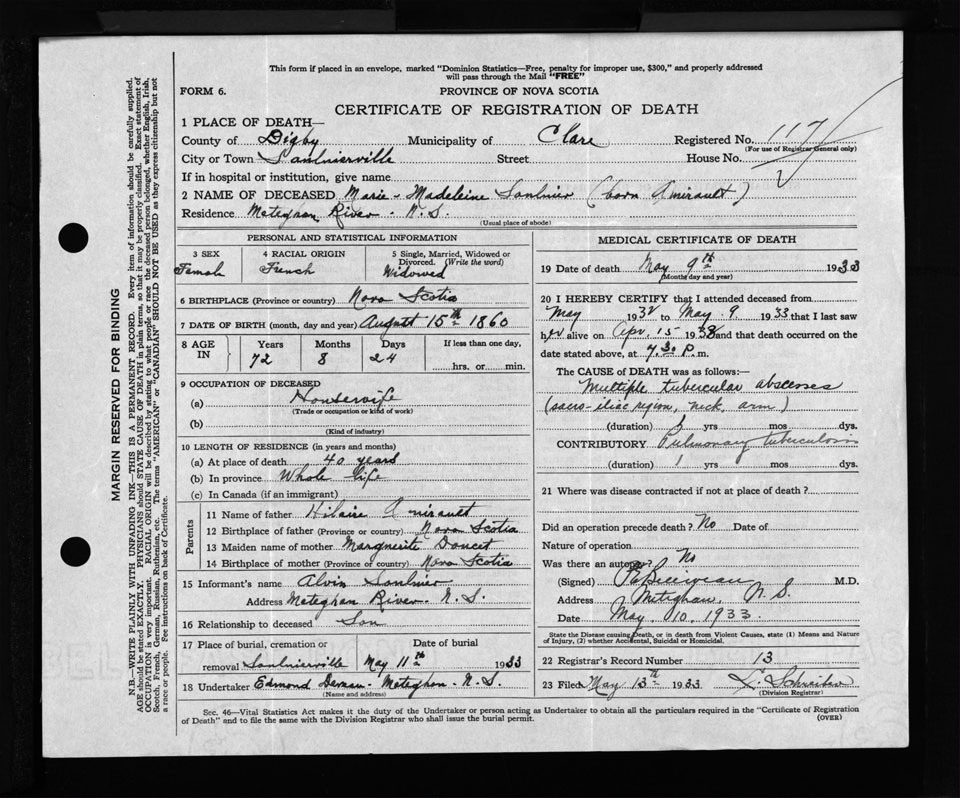 This form if placed in an envelope, marked "Dominion Statistics—Free, penalty for improper use, $300," and properly addressed
will pass through the Mail "FREE"
FORM 6.
PROVINCE OF NOVA SCOTIA
CERTIFICATE OF REGISTRATION OF DEATH
1 PLACE OF DEATH—
County of Digby Municipality of Clare Registered No. 117
(For use of Registrar General only)
City or Town Saulnierville Street House No.
If in hospital or institution, give name
2 NAME OF DECEASED Marie-Madeleine Saulnier (born Amirault)
Residence Meteghan River - N.S.
(Usual place of abode)
PERSONAL AND STATISTICAL INFORMATION
3 SEX 4 RACIAL ORIGIN 5 Single, Married, Widowed or Divorced. (Write the word)
Female French Widowed
6 BIRTHPLACE (Province or country) Nova Scotia
7 DATE OF BIRTH (month, day and year) August 15th 1860
8 AGE IN Years Months Days If less than one day,
72 8 24 hrs. or min.
9 OCCUPATION OF DECEASED
(a) Housewife
(Trade or occupation or kind of work)
(b)
(Kind of industry)
10 LENGTH OF RESIDENCE (in years and months)
(a) At place of death 40 years
(b) In province Whole life
(c) In Canada (if an immigrant)
Parents
11 Name of father Hilaire Amirault
12 Birthplace of father (Province or country) Nova Scotia
13 Maiden name of mother Marguerite Doucet
14 Birthplace of mother (Province or country) Nova Scotia
15 Informant's name Alvin Saulnier
Address Meteghan River - N.S.
16 Relationship to deceased Son
17 Place of burial, cremation or Date of burial
removal Saulnierville May 11th 1933
18 Undertaker Edmond Meteghan - N.S.
(Name and address)
MEDICAL CERTIFICATE OF DEATH
19 Date of death May 9th 1933
(Month, day and year)
20 I HEREBY CERTIFY that I attended deceased from
May 1932 to May 9 1933 that I last saw
her alive on Apr. 15 and that death occurred on the
date stated above, at 7.30 P.m.
The CAUSE of DEATH was as follows:—
Multiple tubercular abscesses
(sacro-iliac region, neck, arm)
(duration) yrs mos dys.
CONTRIBUTORY Pulmonary tuberculosis
(duration) 1 yrs mos dys.
21 Where was disease contracted if not at place of death?
Did an operation precede death? No Date of
Nature of operation
Was there an autopsy? No
(Signed) M.D.
Address Meteghan, N.S.
Date May 10, 1933
State the Disease causing Death, or in death from Violent Causes, state (1) Means and Nature
of Injury, (2) whether Accidental, Suicidal or Homicidal.
22 Registrar's Record Number 13
23 Filed May 13th 1933
(Division Registrar)
Sec. 46—Vital Statistics Act makes it the duty of the Undertaker or person acting as Undertaker to obtain all the particulars required in the "Certificate of Registration
of Death" and to file the same with the Division Registrar who shall issue the burial permit.
(OVER)
MARGIN RESERVED FOR BINDING
N.B.—WRITE PLAINLY WITH UNFADING INK—THIS IS A PERMANENT RECORD. Every item of information should be carefully supplied.
AGE should be stated EXACTLY. PHYSICIANS should STATE CAUSE OF DEATH in plain terms, so that it may be properly classified. Exact statement of
OCCUPATION is very important. RACIAL ORIGIN will be described by stating to what people or race the deceased person belonged, whether English, Irish,
Scotch, French, German, Russian, Ruthenian, etc. The terms "AMERICAN" or "CANADIAN" SHOULD NOT BE USED as they express citizenship but not
a race or people. See instructions on back of Certificate.